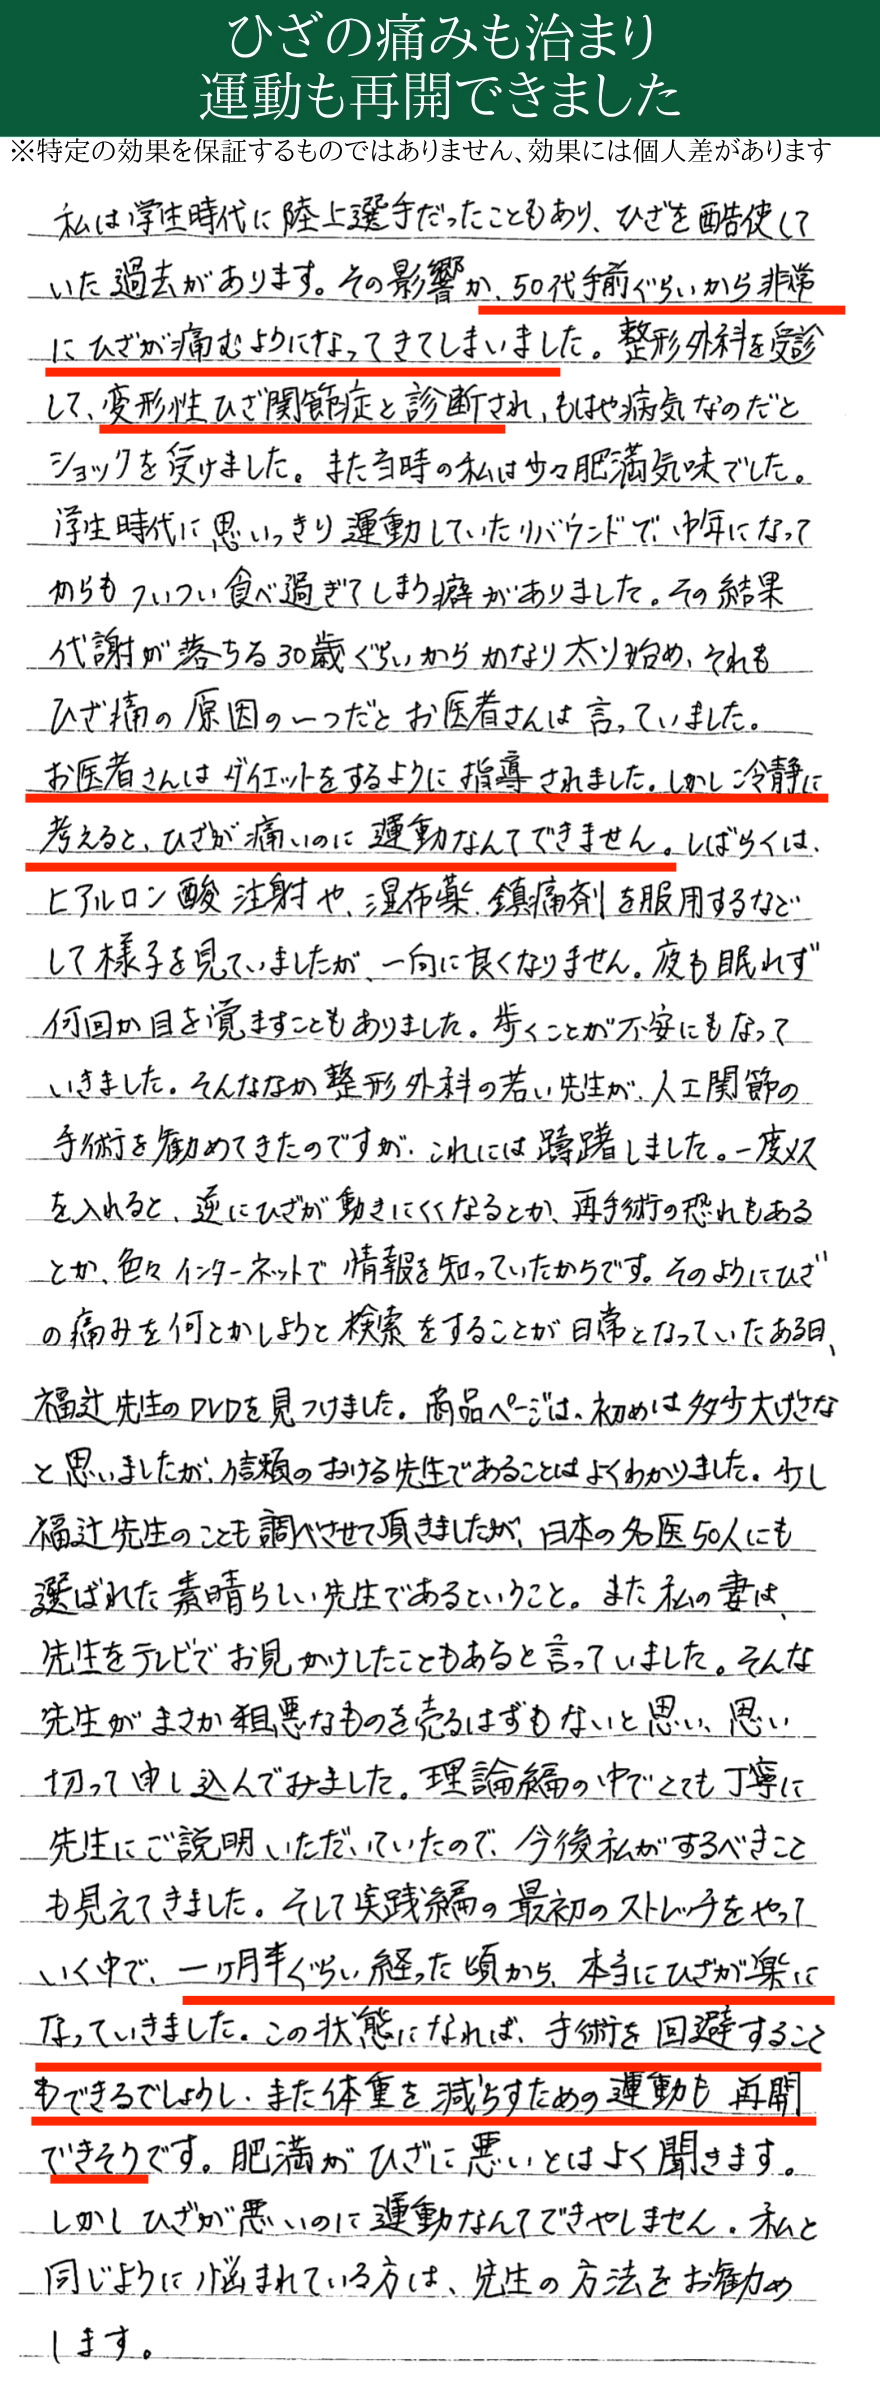 ひざの痛みも治まり
運動も再開できました
※特定の効果を保証するものではありません、効果には個人差があります
私は学生時代に陸上選手だったこともあり、ひざを酷使して
いた過去があります。その影響か、50代手前ぐらいから非常
にひざが痛むようになってきてしまいました。整形外科を受診
して、変形性ひざ関節症と診断され、もはや病気なのだと
ショックを受けました。また当時の私は少々肥満気味でした。
学生時代に思いっきり運動していたリバウンドで、中年になって
からもついつい食べ過ぎてしまう癖がありました。その結果
代謝が落ちる30歳ぐらいからかなり太り始め、それも
ひざ痛の原因の一つだとお医者さんは言っていました。
お医者さんはダイエットをするように指導されました。しかし冷静に
考えると、ひざが痛いのに運動なんてできません。しばらくは、
ヒアルロン酸注射や、湿布薬、鎮痛剤を服用するなど
して様子を見ていましたが、一向に良くなりません。夜も眠れず
何回か目を覚ますこともありました。歩くことが不安にもなって
いきました。そんななか整形外科の若い先生が、人工関節の
手術を勧めてきたのですが、これには躊躇しました。一度メス
を入れると、逆にひざが動きにくくなるとか、再手術の恐れもある
とか、色々インターネットで情報を知っていたからです。そのようにひざ
の痛みを何とかしようと検索をすることが日常となっていたある日、
福辻先生のDVDを見つけました。商品ページは、初めは多少大げさな
と思いましたが、信頼のおける先生であることはよくわかりました。少し
福辻先生のことも調べさせて頂きましたが、日本の名医50人にも
選ばれた素晴らしい先生であるということ。また私の妻は、
先生をテレビでお見かけしたこともあると言っていました。そんな
先生がまさか粗悪なものを売るはずもないと思い、思い
切って申し込んでみました。理論編の中でとても丁寧に
先生にご説明いただいていたので、今後私がするべきこと
も見えてきました。そして実践編の最初のストレッチをやって
いく中で、一ヶ月半ぐらい経った頃から、本当にひざが楽に
なっていきました。この状態になれば、手術を回避すること
もできるでしょうし、また体重を減らすための運動も再開
できそうです。肥満がひざに悪いとはよく聞きます。
しかしひざが悪いのに運動なんてできやしません。私と
同じように悩まれている方は、先生の方法をお勧め
します。